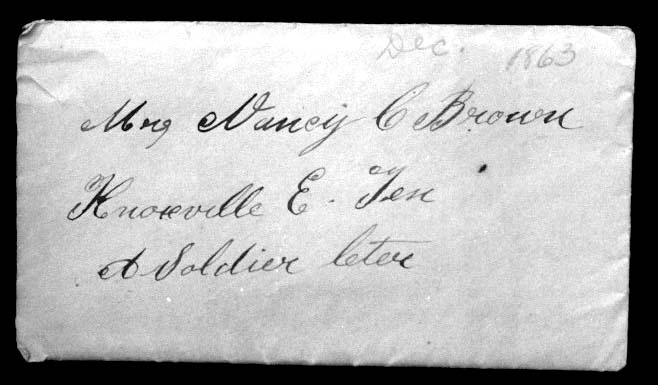 Dec. 1863
Mrs Nancy C Brown
Knoxville E. Ten
A Soldier leter